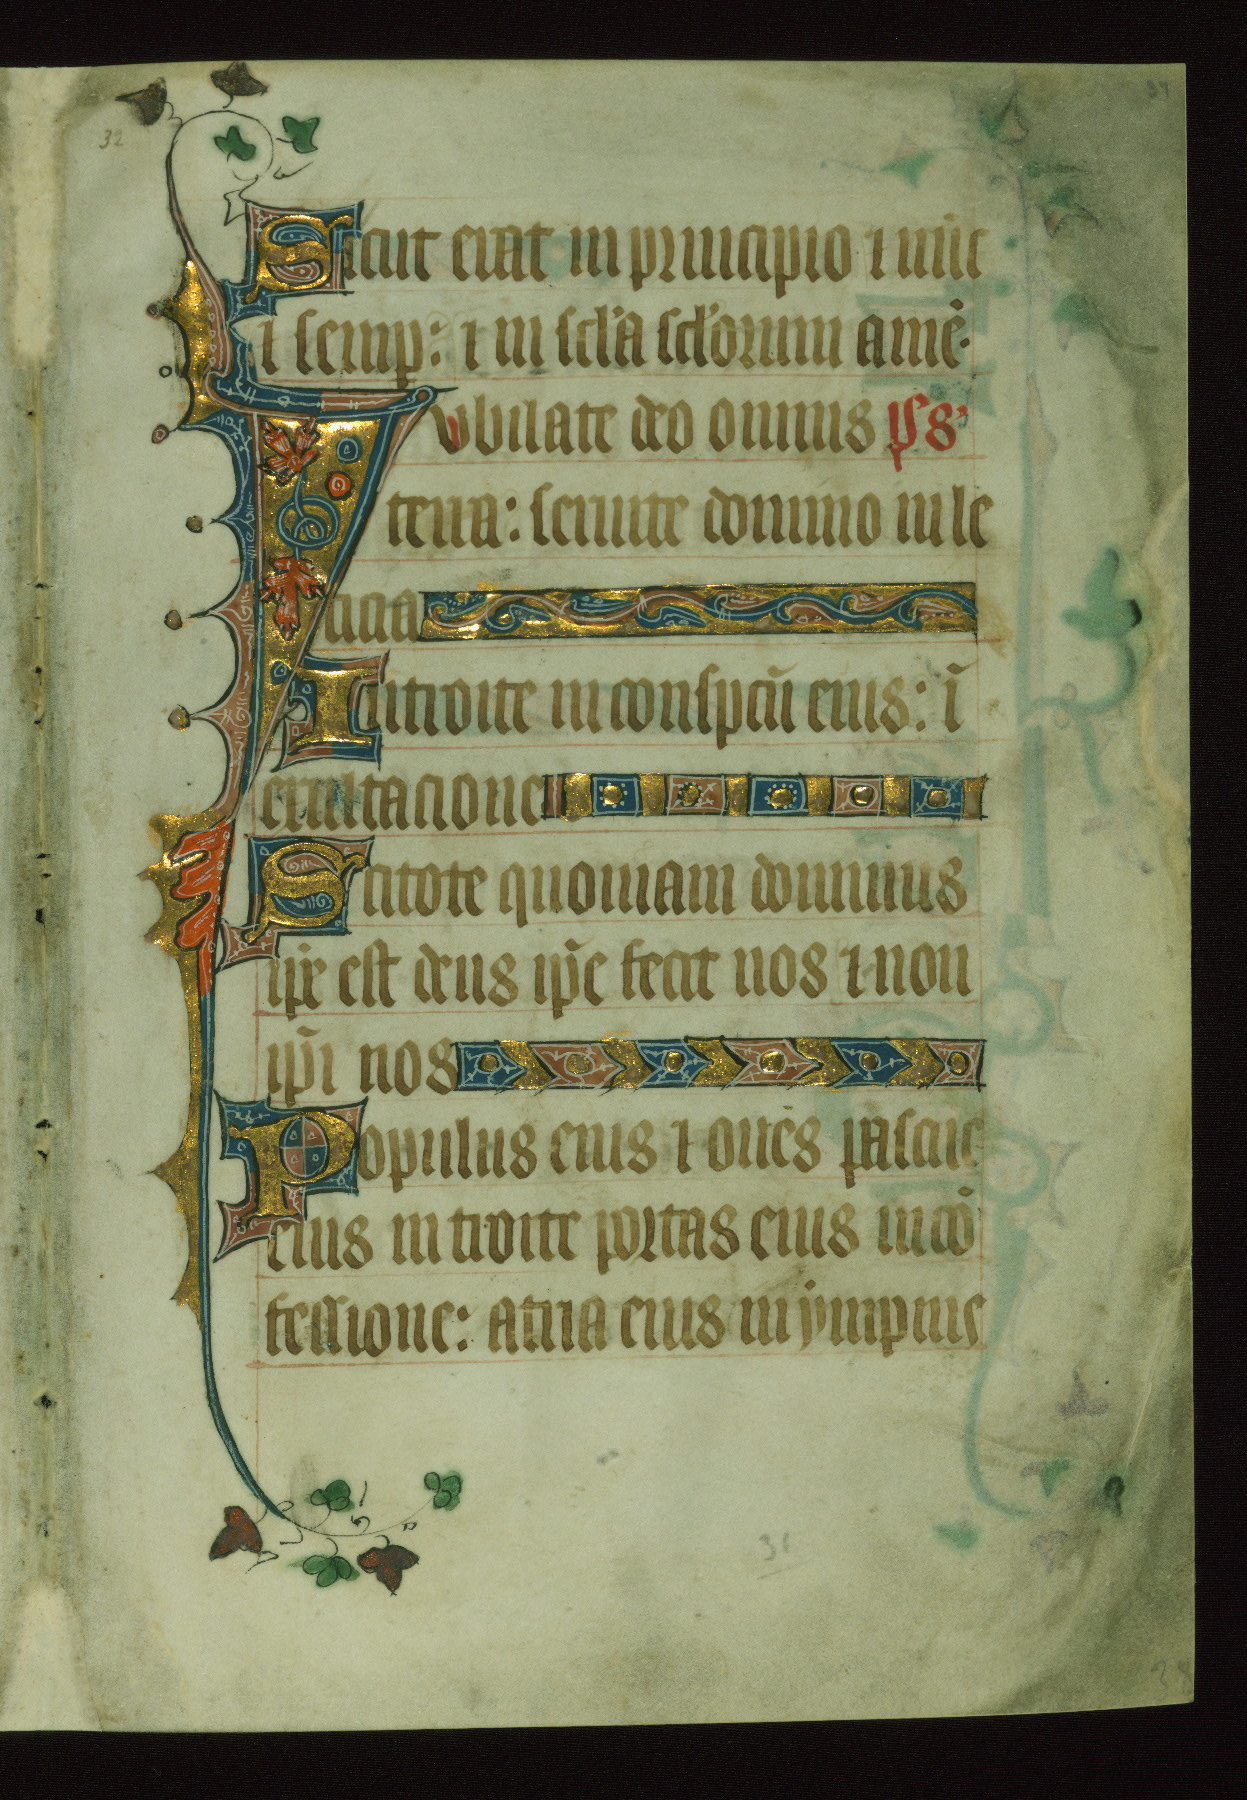 32
34
Sicut erat in principio ⁊ nũc
⁊ semp̱: ⁊ in scl'a scl'orum amẽ.
Iubilate deo omnis ps'
terra: seruite domino in le
ticia
Introite in conspcũ eius: ĩ
exultacione
Scitote quoniam dominus
ip̃e est deus ip̃e fecit nos ⁊ non
ip̃i nos
Populus eius ⁊ oues pascue
eius introite portas eius in cõ
fessione: atria eius in ẏmpnis
31